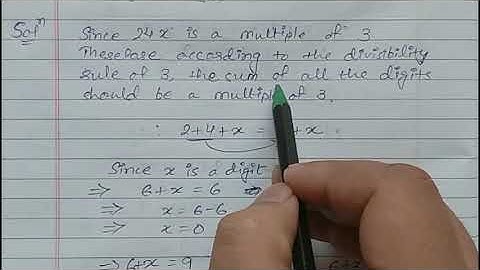 Solⁿ Since 24x is a multiple of 3
Therefore according to the divisibility
rule of 3, the sum of all the digits
should be a multiple of 3.
∴ 2+4+x = + x
Since x is a digit
⇒ 6+x = 6
⇒ x = 6-6
⇒ x = 0
⇒ 6+x = 9